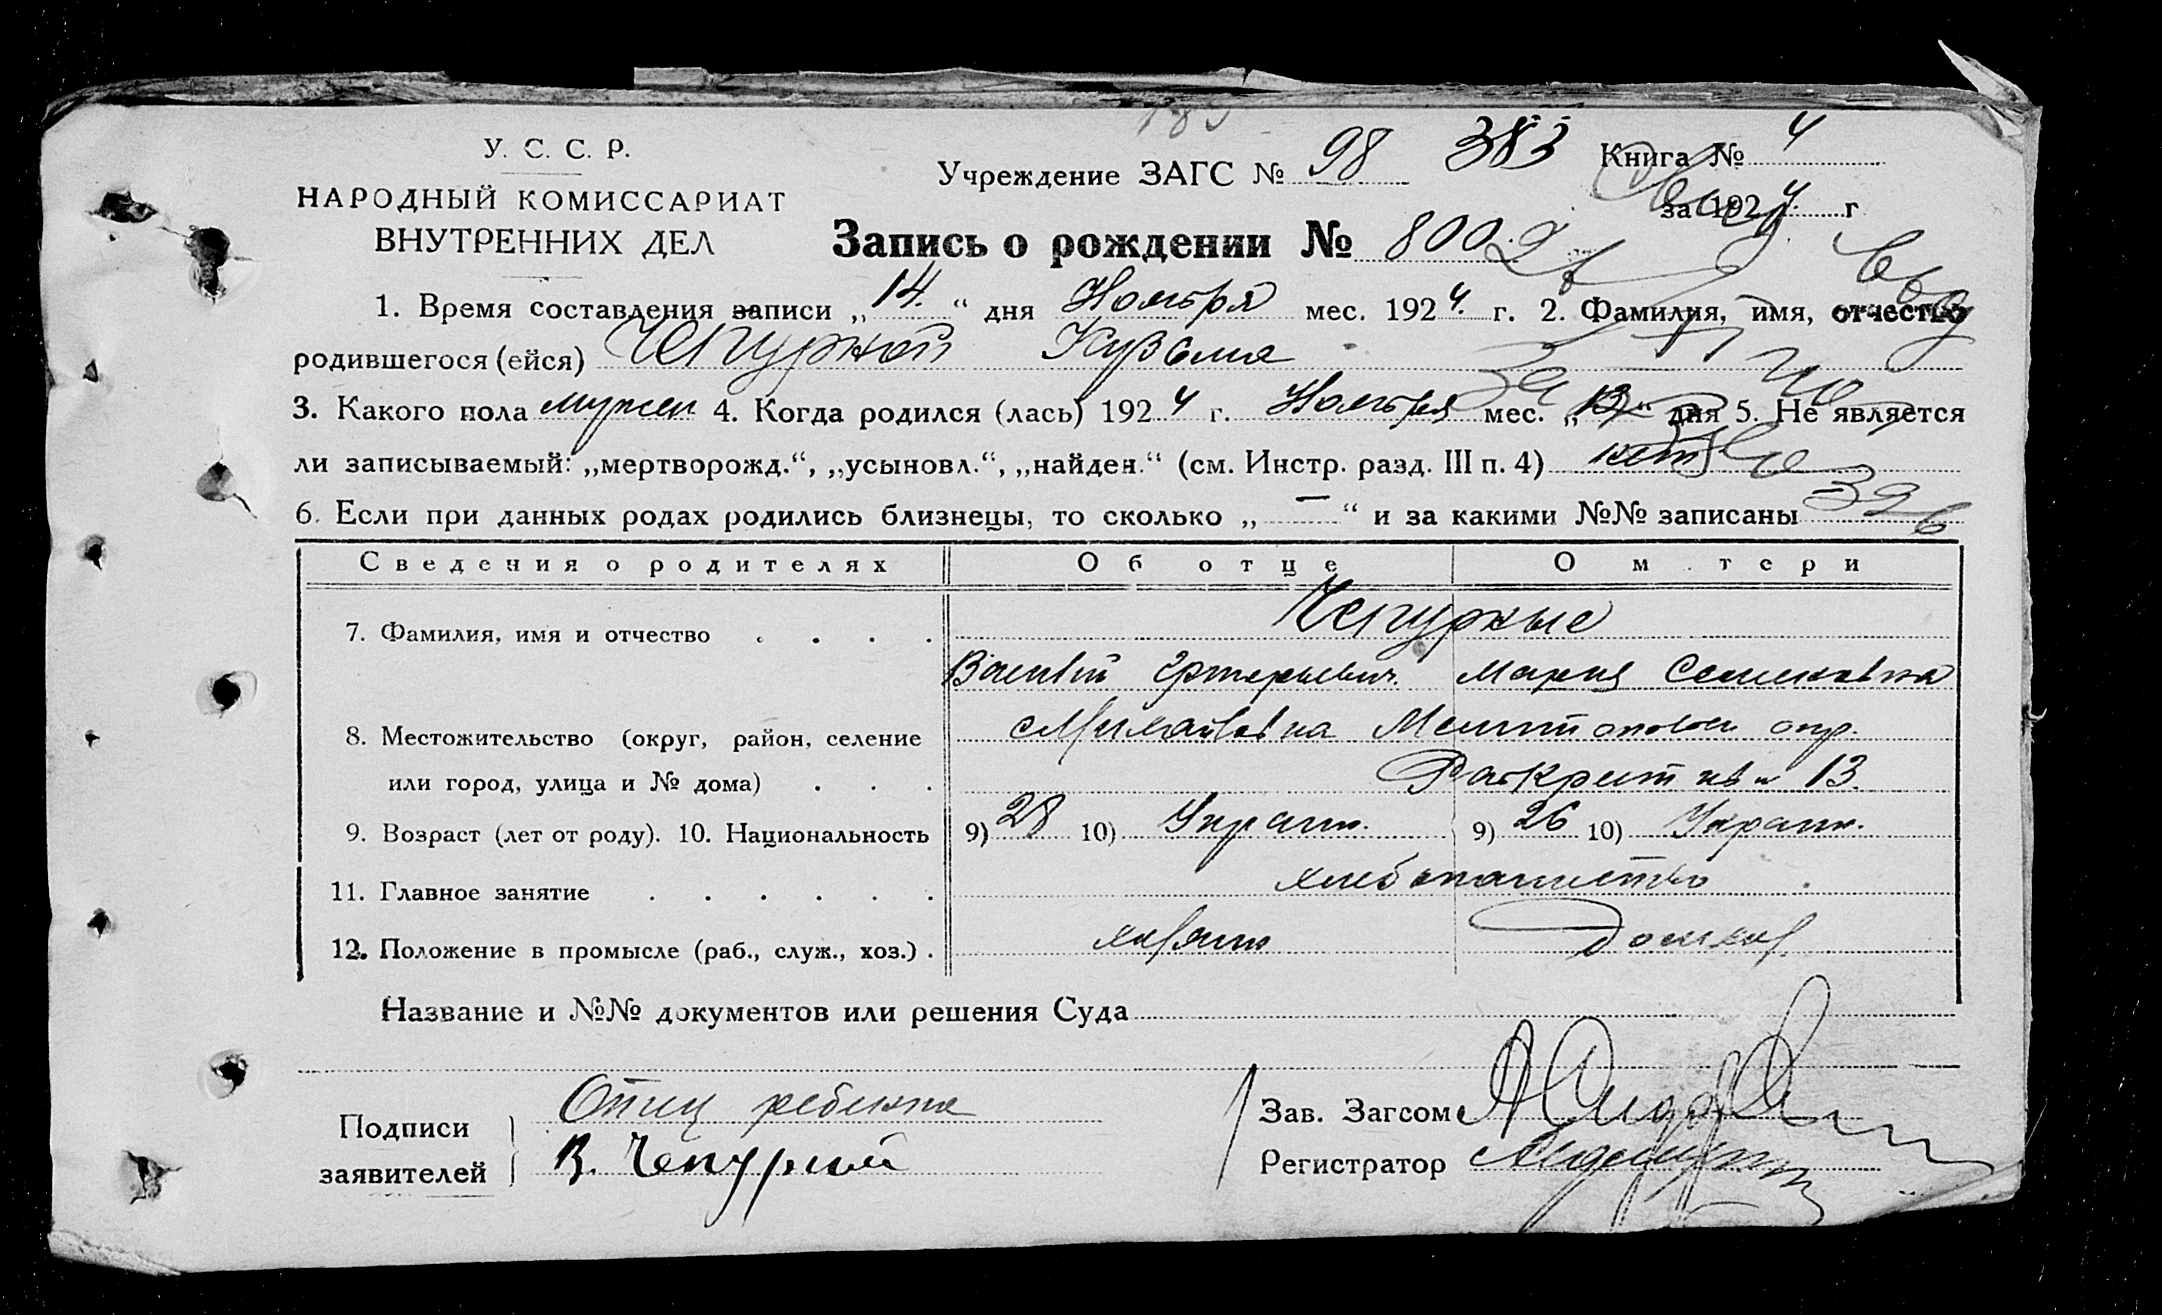 У. С. С. Р.
НАРОДНЫЙ КОМИССАРИАТ
ВНУТРЕННИХ ДЕЛ
Учреждение ЗАГС № 98 383 Книга № 4
за 1924 г
Запись о рождении № 800
1. Время составления записи „14.“ дня Ноября мес. 1924. г. 2. Фамилия, имя, отчество
родившегося (ейся) Чепурной Кузьма
3. Какого пола мужск 4. Когда родился (лась) 1924 г. Ноября мес. „13“ дня 5. Не является
ли записываемый: „мертворожд.“, „усыновл.“, „найден.“ (см. Инстр. разд. III п. 4) нет
6. Если при данных родах родились близнецы, то сколько „—“ и за какими №№ записаны
Сведения о родителях Об отце О м тери
7. Фамилия, имя и отчество . . . . Чепурные
Мария Семеновна
8. Местожительство (округ, район, селение
или город, улица и № дома) . . . 13.
9. Возраст (лет от роду). 10. Национальность 9) 28 10) Украин. 9) 26 10) Украин.
11. Главное занятие . . . . . . хлебопашество
12. Положение в промысле (раб., служ., хоз.) . хозяин
Название и №№ документов или решения Суда
Подписи
заявителей
Отец ребенка
В. Чепурный
Зав. Загсом
Регистратор